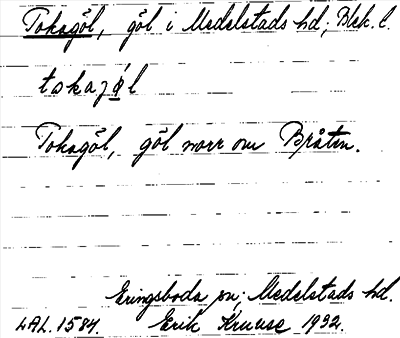 Tokagöl, göl i Medelstads hd; Blek. l.
tokaʒǿl
Tokagöl, göl norr om Bråten.
Eringsboda sn; Medelstads hd.
LAL. 1584. Erik Kruuse 1932.